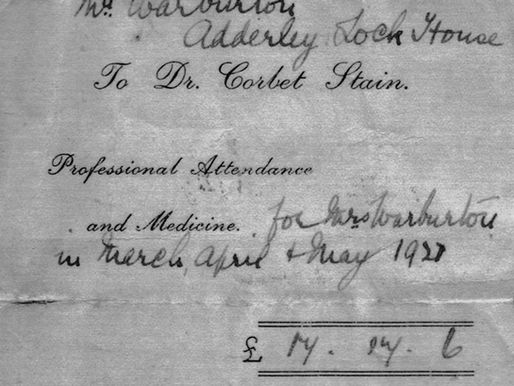 Mr. Warburton
Adderley Lock House
To Dr. Corbet Stain.
Professional Attendance
and Medicine. for Mrs Warburton
in March, April & May
£ 6